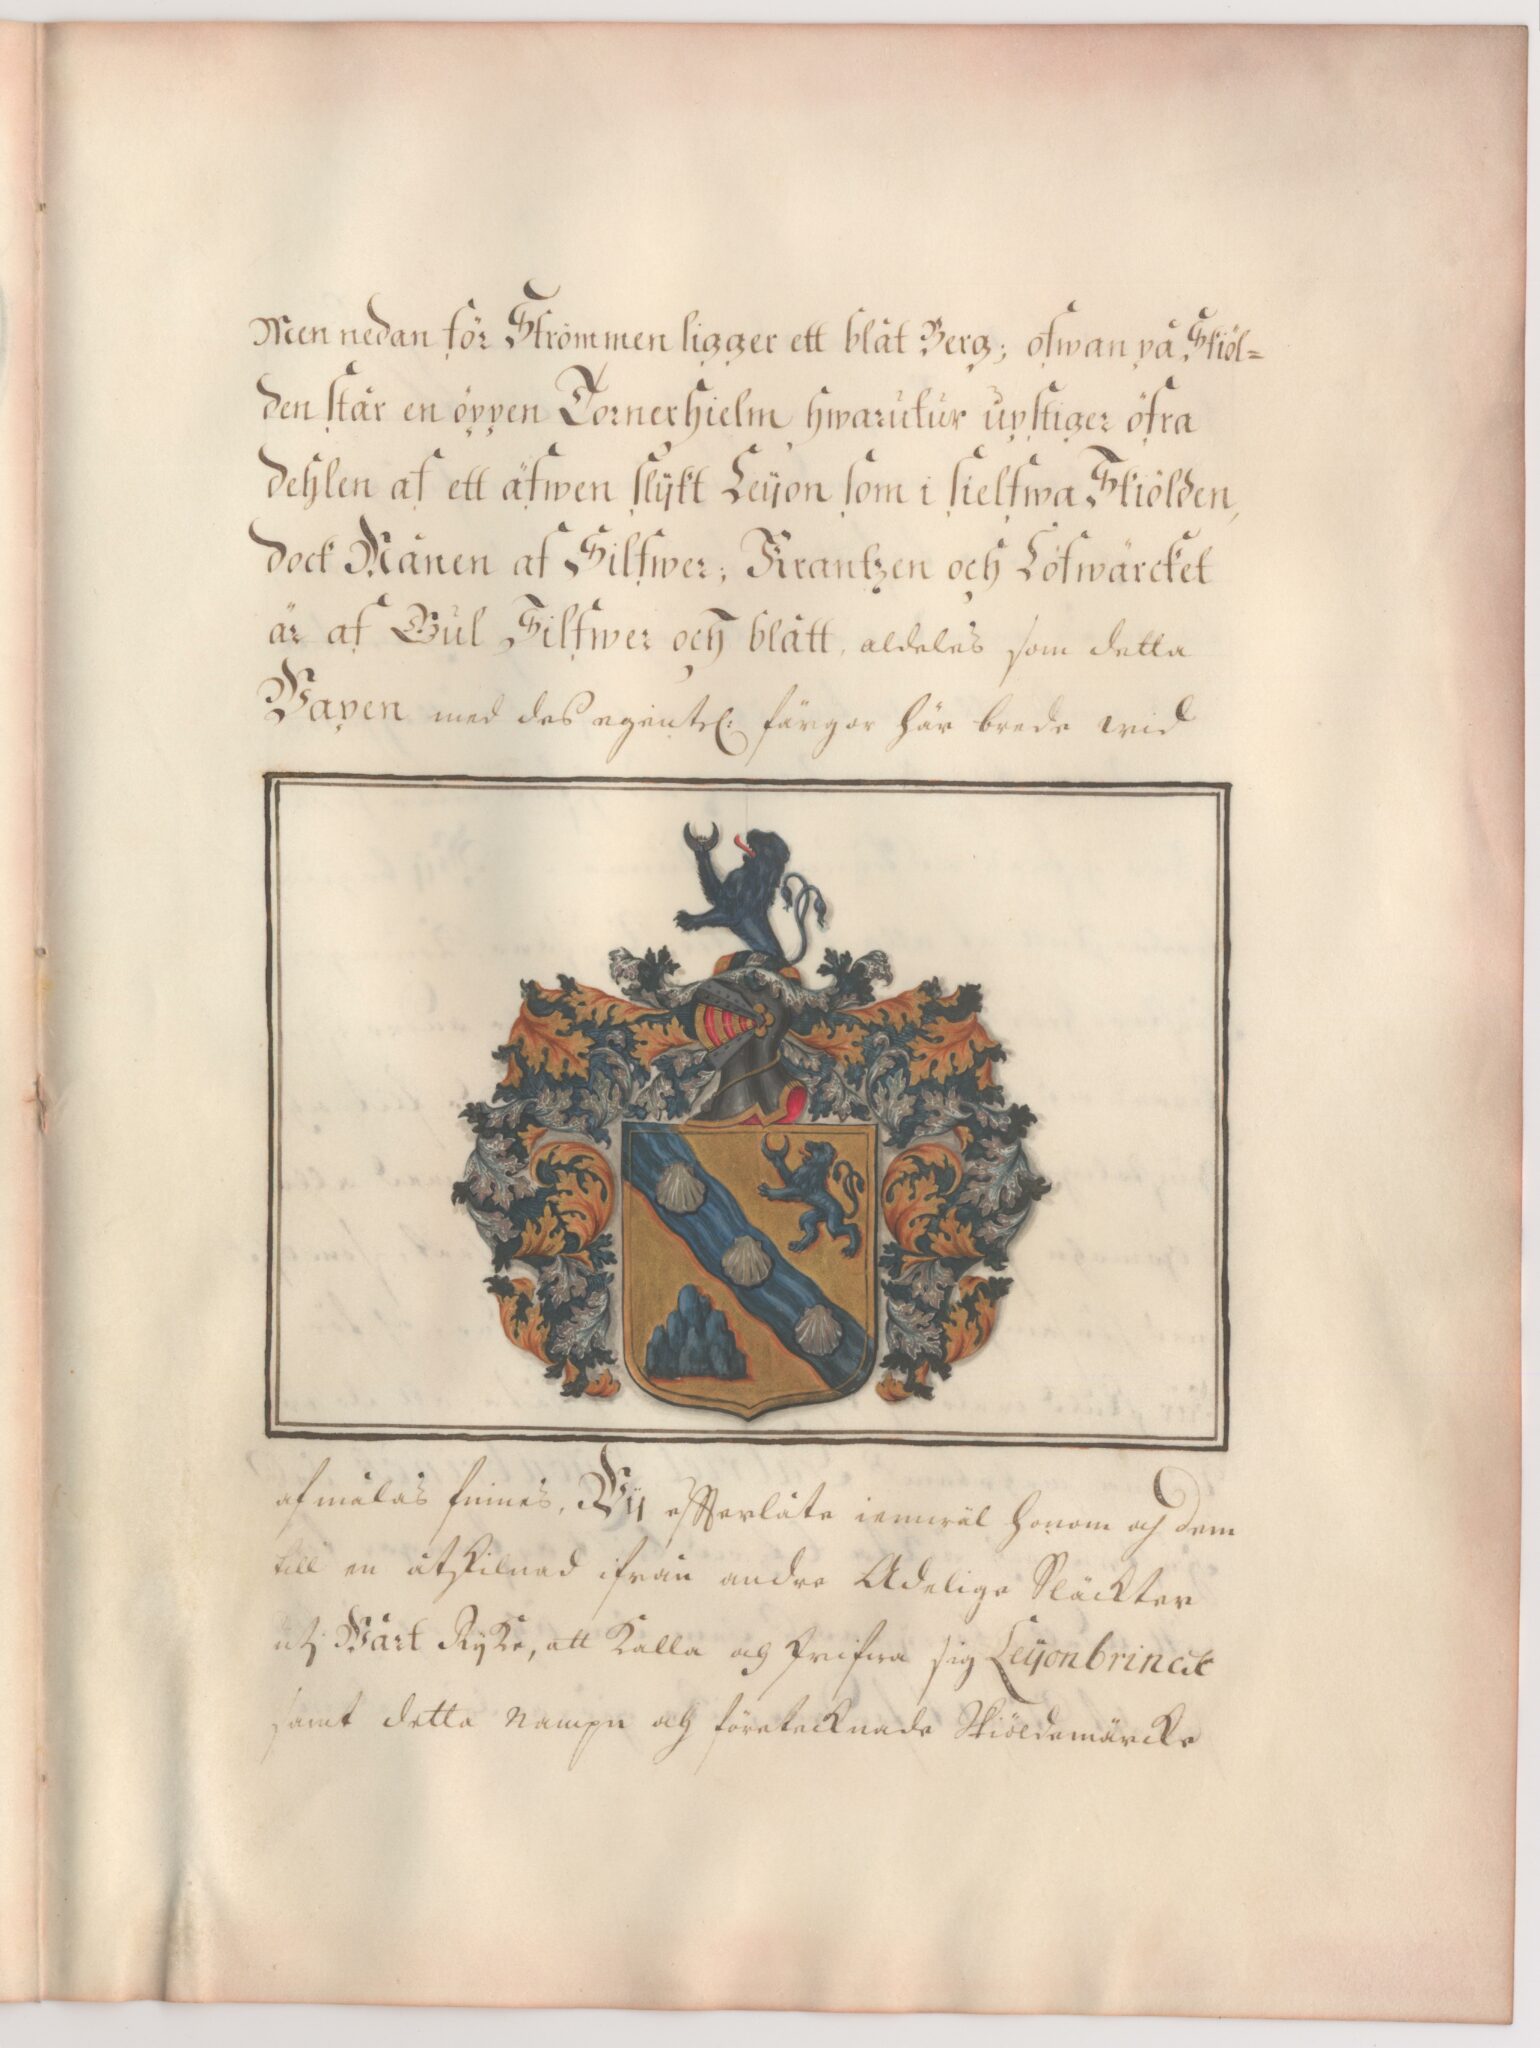 Men nedan för Strömmen ligger ett blåt Berg; ofwan på Skiöl=
den står en öppen Tornerhielm hwarutur upstiger öfra
dehlen af ett äfwen slijkt Leijon som i sielfwa Skiölden,
dock Månen af Silfwer; Krantzen och Löfwärcket
är af Gul Silfwer och blått, aldeles som detta
Wapen med des egentel: färgor här brede wid
afmålas finnes, Wij efterlåte iemwäl honom och dem
till en åtskilnad ifrån andre Adelige Släckter
utj Wårt Rijke, att kalla och skrifwa sig Leijonbrinck
samt detta Nampn och företeknade Skiöldemärcke